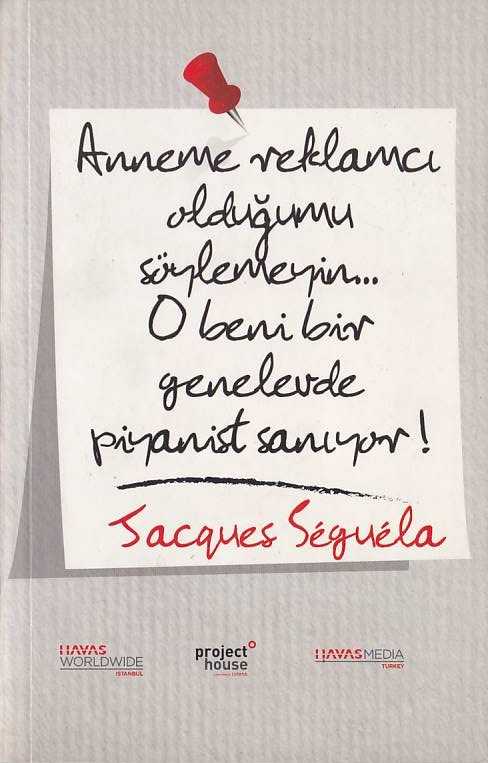 Anneme reklamcı
olduğumu
söylemeyin...
O beni bir
genelevde
piyanist sanıyor!
Jacques Séguéla
HAVAS
WORLDWIDE
ISTANBUL
project
house
HAVAS MEDIA
TURKEY